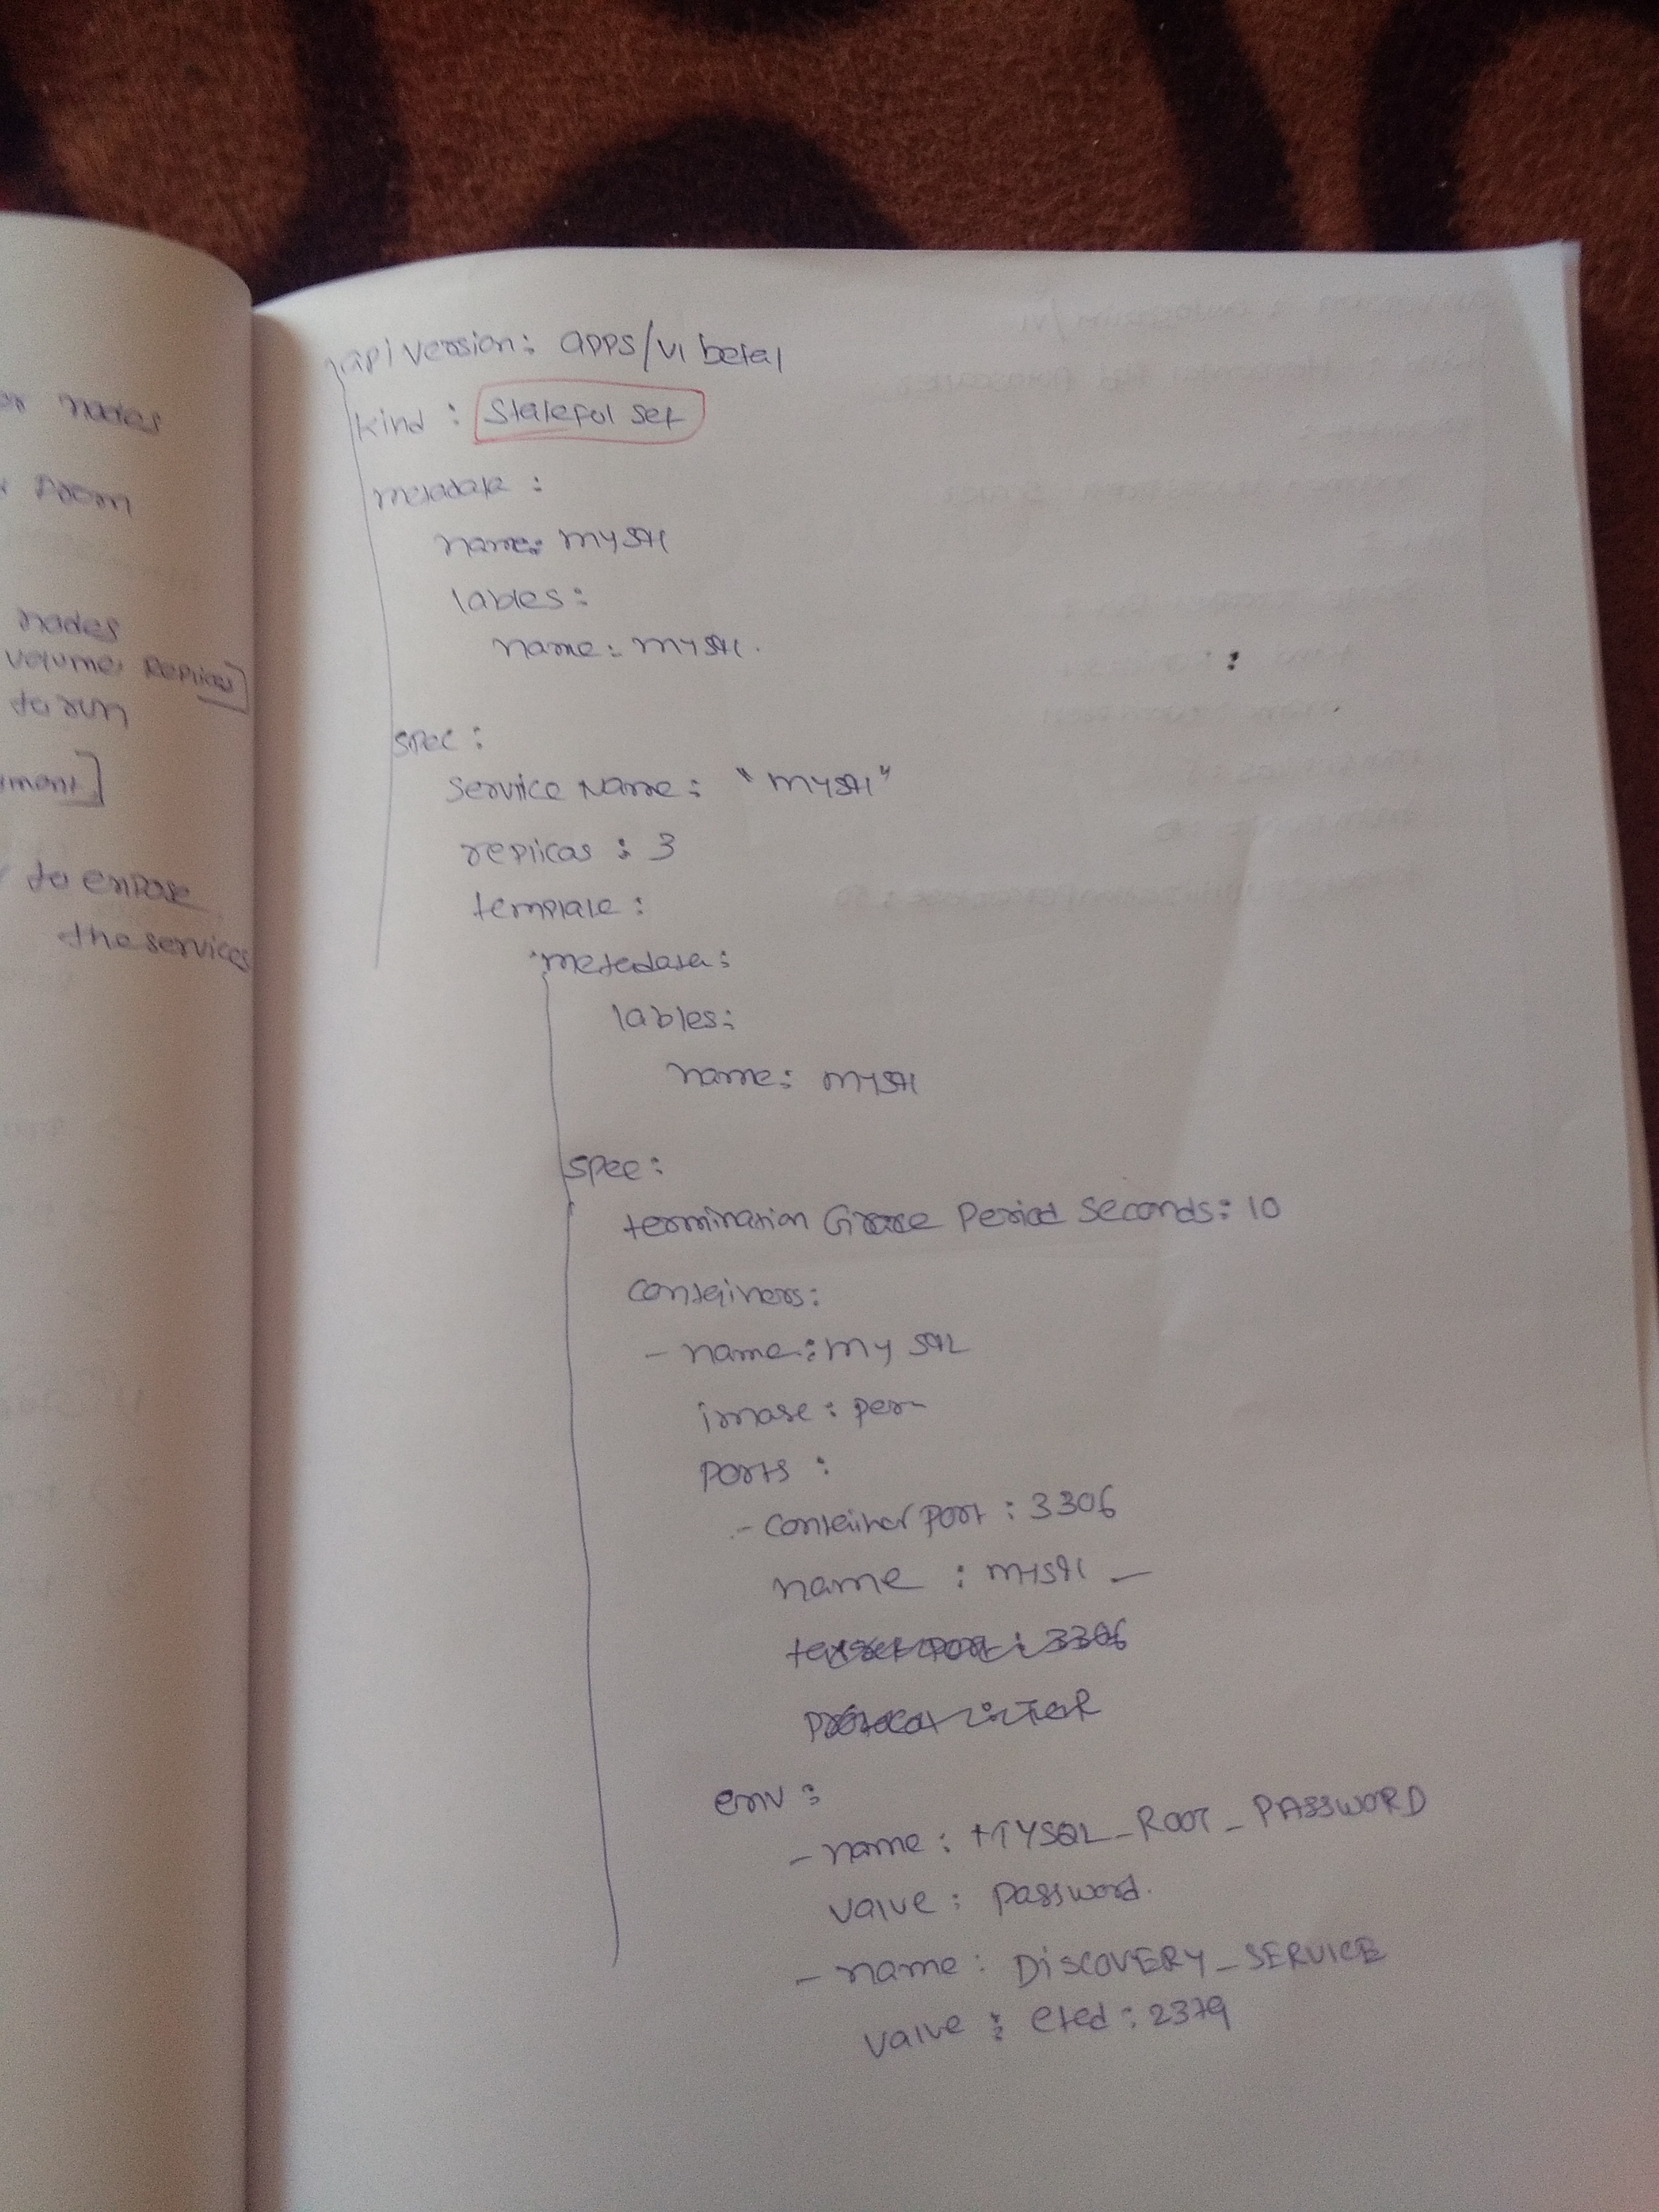 nodes
Prom
nodes
volumes Replicas]
to run
ument]
to expose
the services
api version: apps/v1 beta1
kind : Stateful set
metadata :
name: mysql
lables:
name: mysql.
spec :
service Name: "mysql"
replicas : 3
template :
metadata:
lables:
name: mysql
spec:
termination Grace Period Seconds: 10
containers:
- name: my sql
image: per-
ports :
- container port : 3306
name : mysql -
env :
- name: MYSQL_ROOT_PASSWORD
value: password.
- name: DISCOVERY_SERVICE
value : etcd:2379